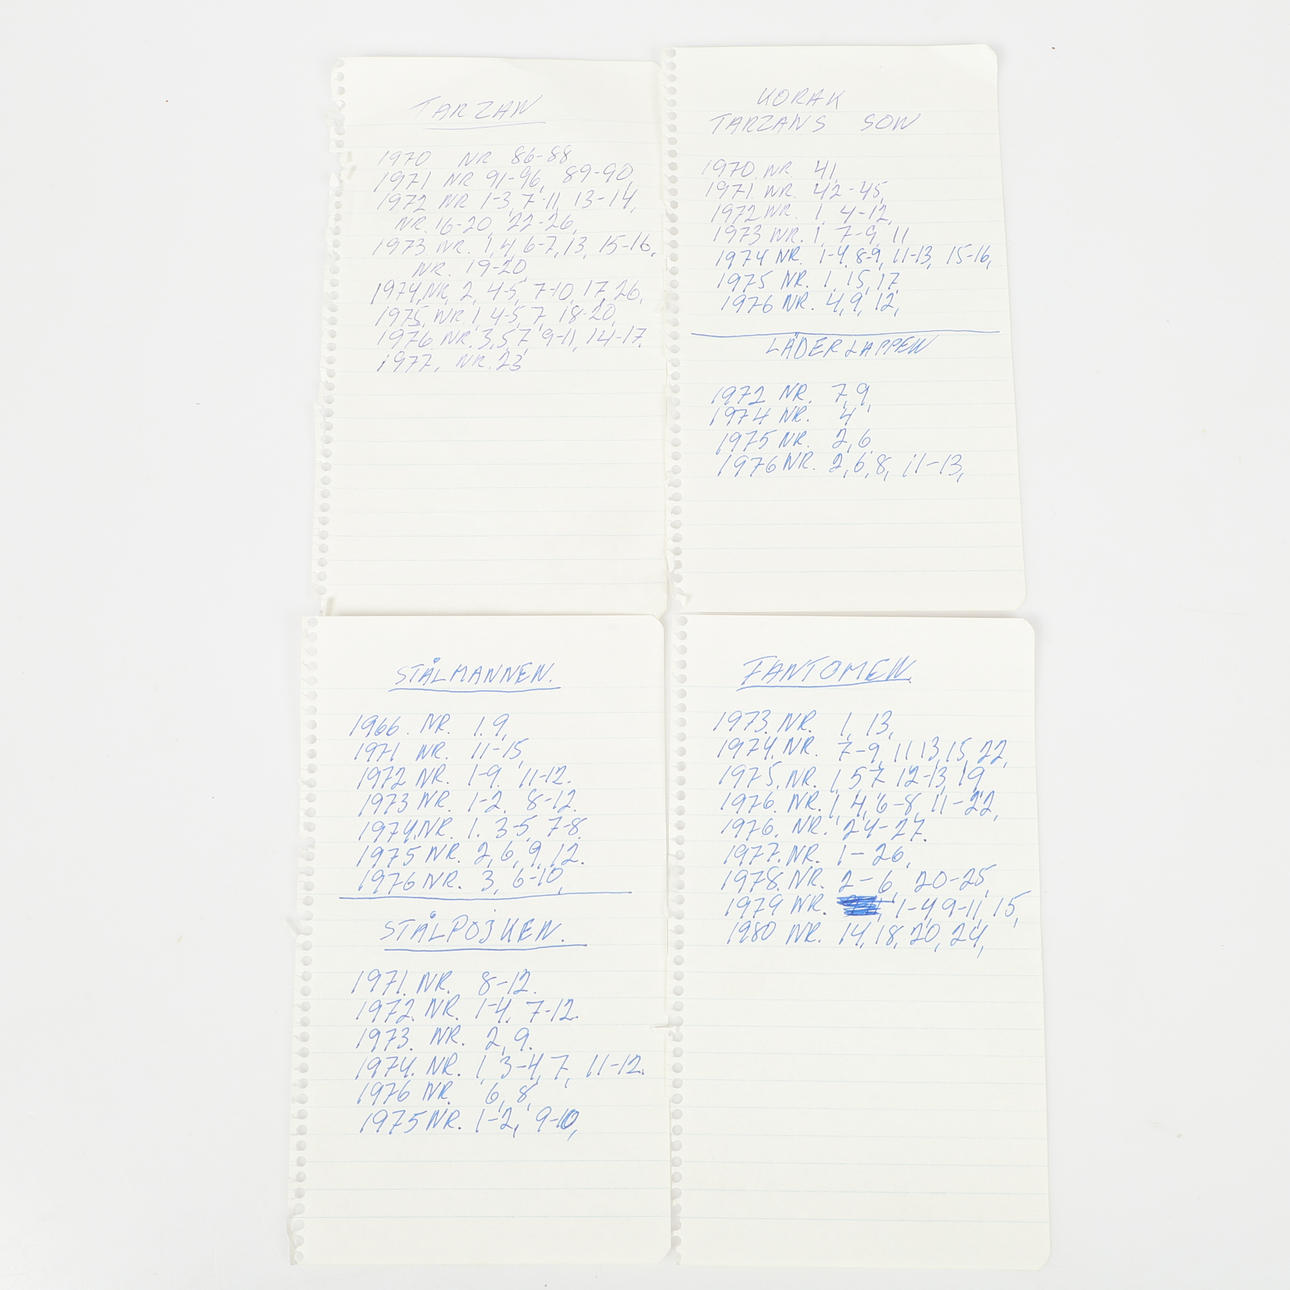 TARZAN
1970 NR 86-88
1971 NR 91-96, 89-90,
1972 NR 1-3, 7-11, 13-14,
NR. 16-20, 22-26,
1973 NR. 1, 4, 6-7, 13, 15-16,
NR. 19-20,
1974, NR, 2, 4-5, 7-10, 17, 26,
1975, NR, 1, 4-5, 7, 18-20,
1976 NR. 3, 5, 7, 9-11, 14-17,
1977, NR. 23
KORAK
TARZANS SON
1970 NR 41,
1971 NR. 42-45,
1972 NR. 1, 4-12,
1973 NR. 1, 7-9, 11
1974 NR. 1-4, 8-9, 11-13, 15-16,
1975 NR. 1, 15, 17,
1976 NR. 4, 9, 12,
LÄDERLAPPEN
1972 NR. 7, 9,
1974 NR. 4
1975 NR. 2, 6,
1976 NR. 2, 6, 8, 11-13,
STÅLMANNEN.
1966. NR. 1. 9,
1971 NR. 11-15,
1972 NR. 1-9. 11-12.
1973 NR. 1-2. 8-12.
1974. NR. 1. 3-5, 7-8.
1975 NR. 2, 6, 9, 12.
1976 NR. 3, 6-10,
STÅLPOJKEN.
1971. NR. 8-12.
1972. NR. 1-4. 7-12.
1973. NR. 2, 9.
1974. NR. 1, 3-4, 7, 11-12.
1976 NR. 6, 8,
1975 NR. 1-2, 9-10,
FANTOMEN.
1973. NR. 1, 13,
1974. NR. 7-9, 11, 13, 15, 22,
1975. NR. 1, 5, 7, 12-13, 19
1976. NR. 1, 4, 6-8, 11-22,
1976. NR. 24-27.
1977. NR. 1-26,
1978. NR. 2-6, 20-25,
1979 NR. 1-4, 9-11, 15,
1980 NR. 14, 18, 20, 24,